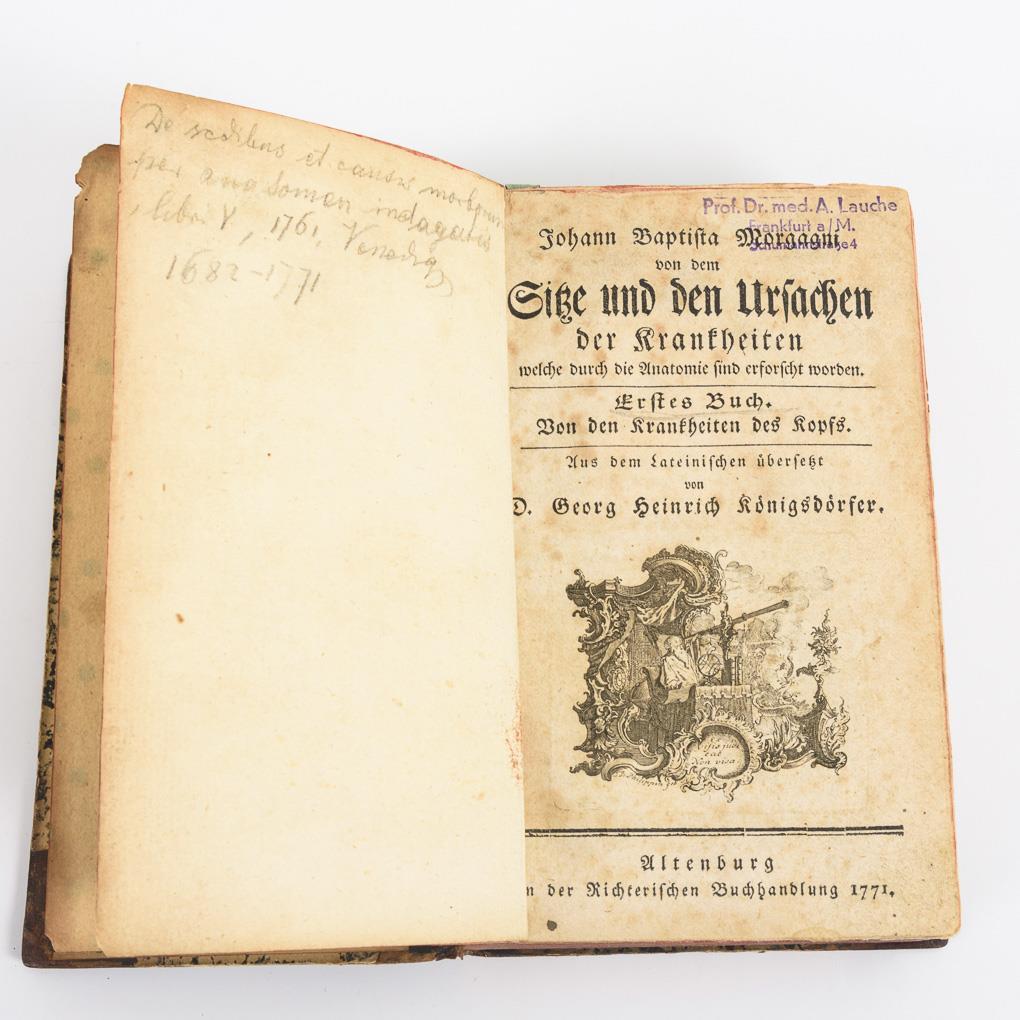 De sedibus et causis morborum
per anatomen indagatis
libri V, 1761, Venedig
1682-1771
Prof. Dr. med. A. Lauche
Frankfurt a/M.
Schumannstraße 4
Johann Baptiſta Morgagni
von dem
Sitze und den Urſachen
der Krankheiten
welche durch die Anatomie ſind erforſcht worden.
Erſtes Buch.
Von den Krankheiten des Kopfs.
Aus dem Lateiniſchen überſetzt
von
D. Georg Heinrich Königsdörfer.
Non viſa
Altenburg
n der Richteriſchen Buchhandlung 1771.